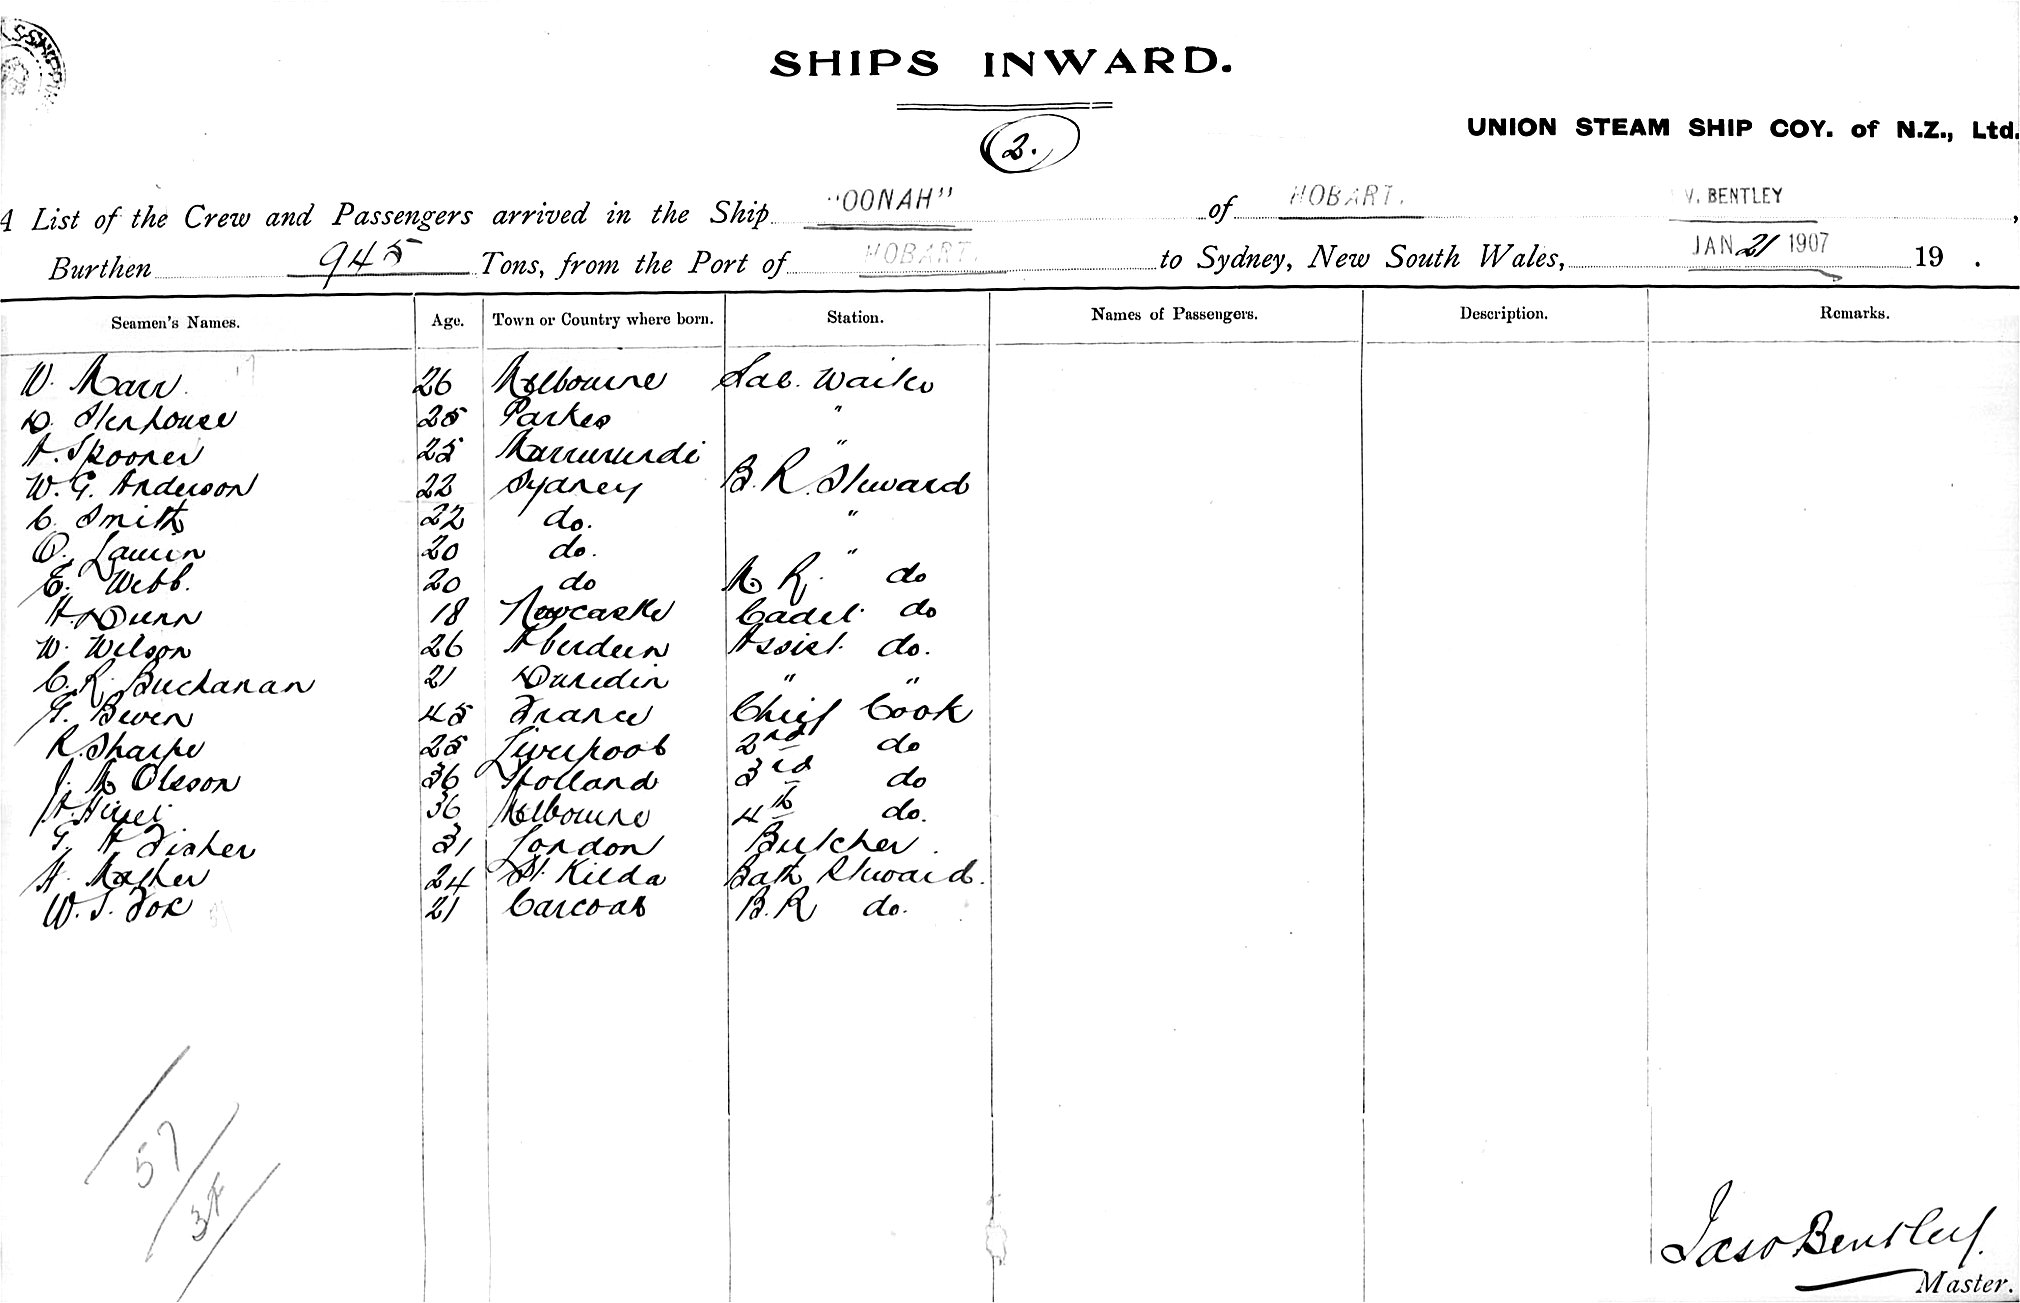 SHIPS INWARD.
2.
UNION STEAM SHIP COY. of N.Z., Ltd.
A List of the Crew and Passengers arrived in the Ship "OONAH" of HOBART. V. BENTLEY,
Burthen 945 Tons, from the Port of HOBART. to Sydney, New South Wales, JAN 21 1907 19 .
Seamen's Names. Age. Town or Country where born. Station. Names of Passengers. Description. Remarks.
W. Marr 26 Melbourne Sal. Waiter
D. Stenhouse 25 Parkes "
A. Spooner 25 Murrurundi "
W. G. Anderson 22 Sydney B. R. Steward
C. Smith 22 do. "
O. 20 do. "
E. Webb. 20 do M. R. do
H. Dunn 18 Newcastle Cadet do
W. Wilson 26 Aberdeen Assist. do.
C. R. Buchanan 21 Dunedin " "
G. Beven 45 France Chief Cook
R. Sharpe 25 Liverpool 2nd do
J. M Olsson 36 Holland 3rd do
A. 36 Melbourne 4th do.
G. H. Fisher 31 London Butcher.
H. Mather 24 St. Kilda Bath Steward.
W. S. Fox 21 Carcoar B. R do.
57
37
Jas Bentley.
Master.